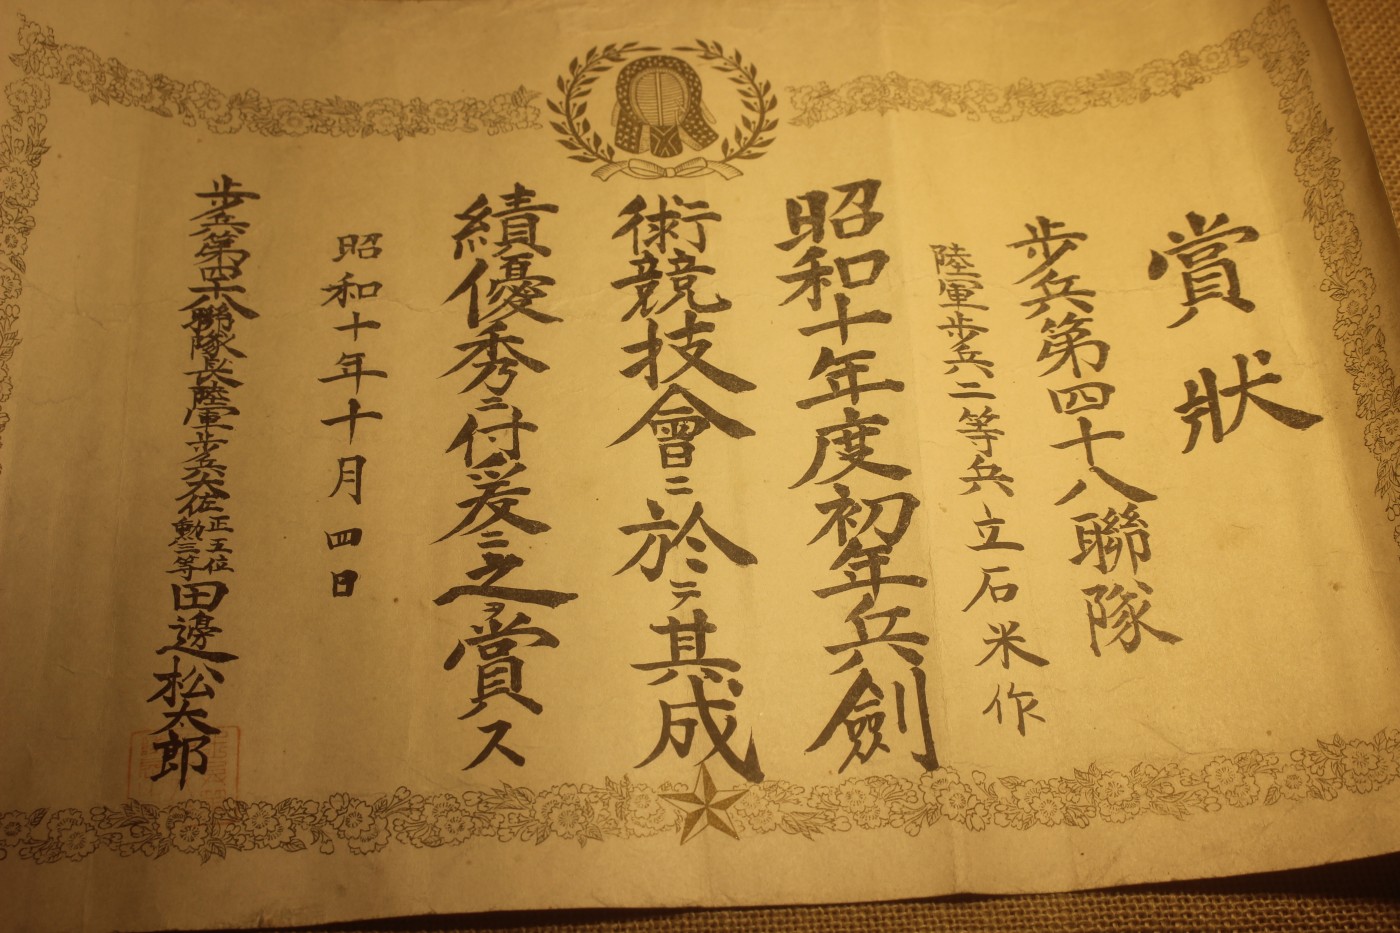 賞狀
步兵第四十八聯隊
陸軍步兵二等兵立石米作
昭和十年度初年兵劍
術競技會ニ於テ其成
績優秀ニ付爰ニ之ヲ賞ス
昭和十年十月四日
步兵第四十八聯隊長陸軍步兵大佐正五位勳三等田邊松太郎